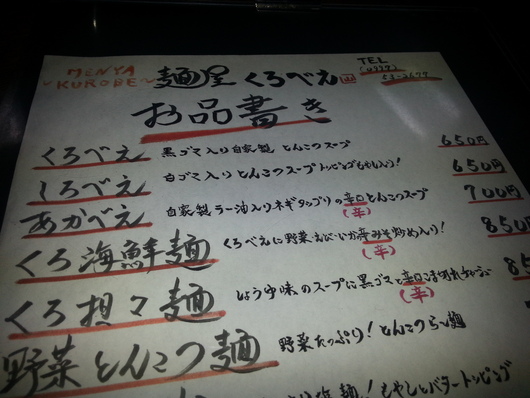 MENYA KUROBE 麺屋 くろべえ
TEL
お品書き
くろべえ 黒ゴマ入り自家製 とんこつスープ 650円
しろべえ 白ゴマ入り とんこつスープ トッピングもやし入り! 650円
あかべえ 自家製ラー油入りネギタップリの辛口とんこつスープ 700円
(辛)
くろ海鮮麺 くろべえに野菜えび・いか辛みそ炒め入り! 850円
(辛)
くろ担々麺 しょうゆ味のスープに黒ゴマと辛口 85
(辛)
野菜とんこつ麺 野菜たっぷり! とんこつらー麺
麺! もやしとバタートッピング